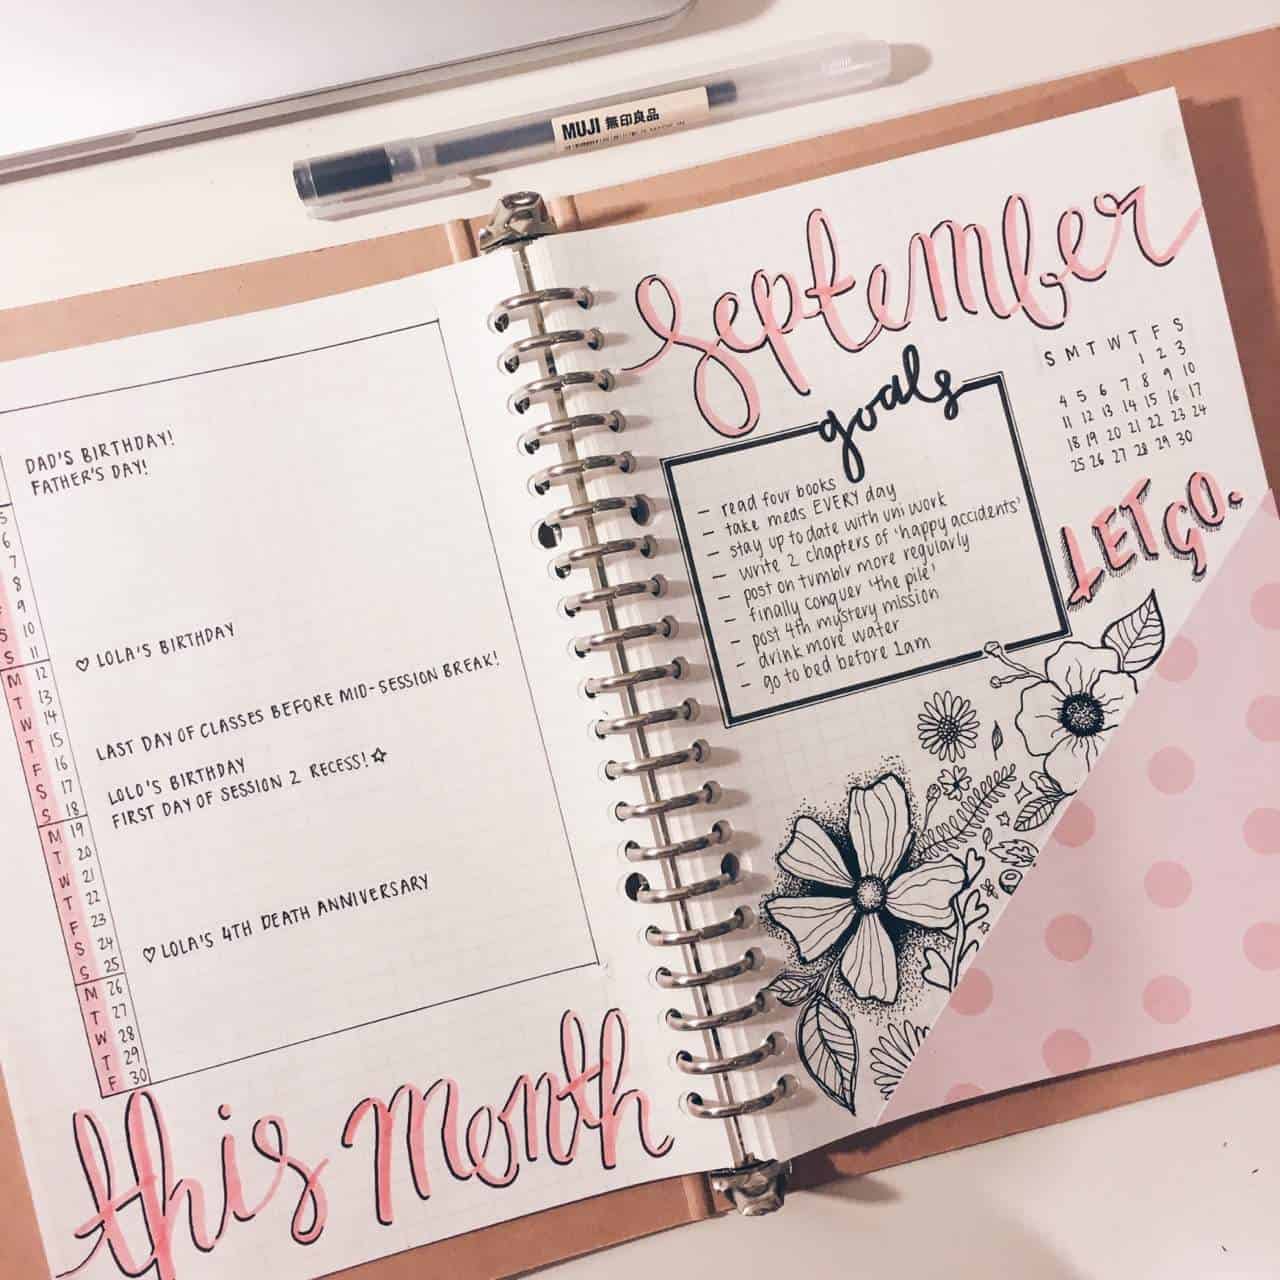 MUJI 無印良品
DAD'S BIRTHDAY!
FATHER'S DAY!
5
6
7
8
9
S 10
S 11
M 12
T 13
W 14
T 15
F 16
S 17
S 18
M 19
T 20
W 21
T 22
F 23
S 24
S 25
M 26
T 27
W 28
T 29
F 30
♡ LOLA'S BIRTHDAY
LAST DAY OF CLASSES BEFORE MID-SESSION BREAK!
LOLO'S BIRTHDAY
FIRST DAY OF SESSION 2 RECESS! ☆
♡ LOLA'S 4TH DEATH ANNIVERSARY
this month
September
S M T W T F S
1 2 3
4 5 6 7 8 9 10
11 12 13 14 15 16 17
18 19 20 21 22 23 24
25 26 27 28 29 30
goals
- read four books
- take meds EVERY day
- stay up to date with uni work
- write 2 chapters of 'happy accidents'
- post on tumblr more regularly
- finally conquer 'the pile'
- post 4th mystery mission
- drink more water
- go to bed before 1am
LET GO.